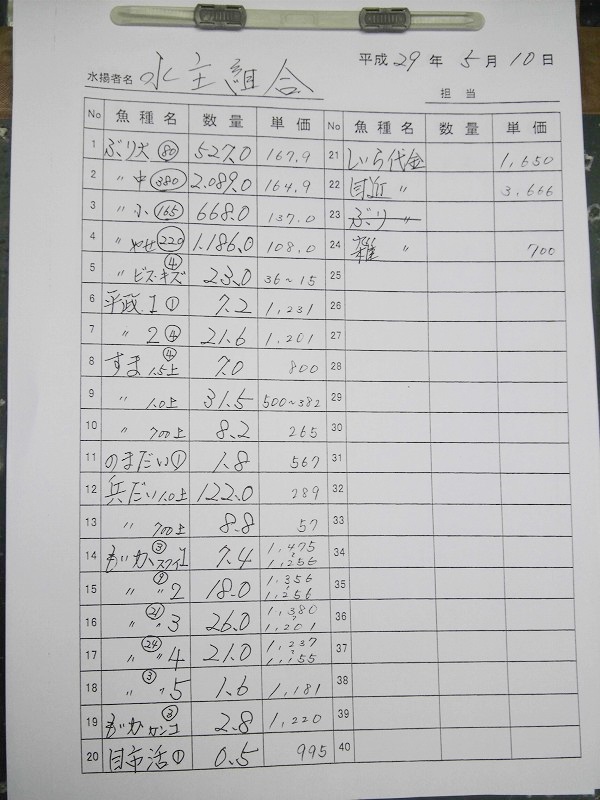 平成 29 年 5 月 10 日
水揚者名 水主組合
担当
No 魚種名 数量 単価
1 ぶり大 80 527.0 167.9
2 〃 中 380 2.089.0 164.9
3 〃 小 165 668.0 137.0
4 〃 やせ 220 1.186.0 108.0
5 〃 ビズ・キズ 4 23.0 36~15
6 平政 1 1 7.2 1,231
7 〃 2 4 21.6 1,201
8 すま 1.5上 4 7.0 800
9 〃 1.0上 31.5 500~382
10 〃 700上 8.2 265
11 のまだい 1 1.8 567
12 兵だい 1.0上 122.0 289
13 〃 700上 8.8 57
14 もいか 3 スフイ1 7.4 1,475~1,256
15 〃 〃 9 2 18.0 1,356~1,256
16 〃 〃 21 3 26.0 1,380~1,201
17 〃 〃 24 4 21.0 1,237~1,155
18 〃 〃 3 5 1.6 1,181
19 もいか 3 ケンコ 2.8 1,220
20 目市活 1 0.5 995
No 魚種名 数量 単価
21 しいら代金 1,650
22 目近 〃 3,666
23 ぶり 〃
24 雑 〃 700
25
26
27
28
29
30
31
32
33
34
35
36
37
38
39
40